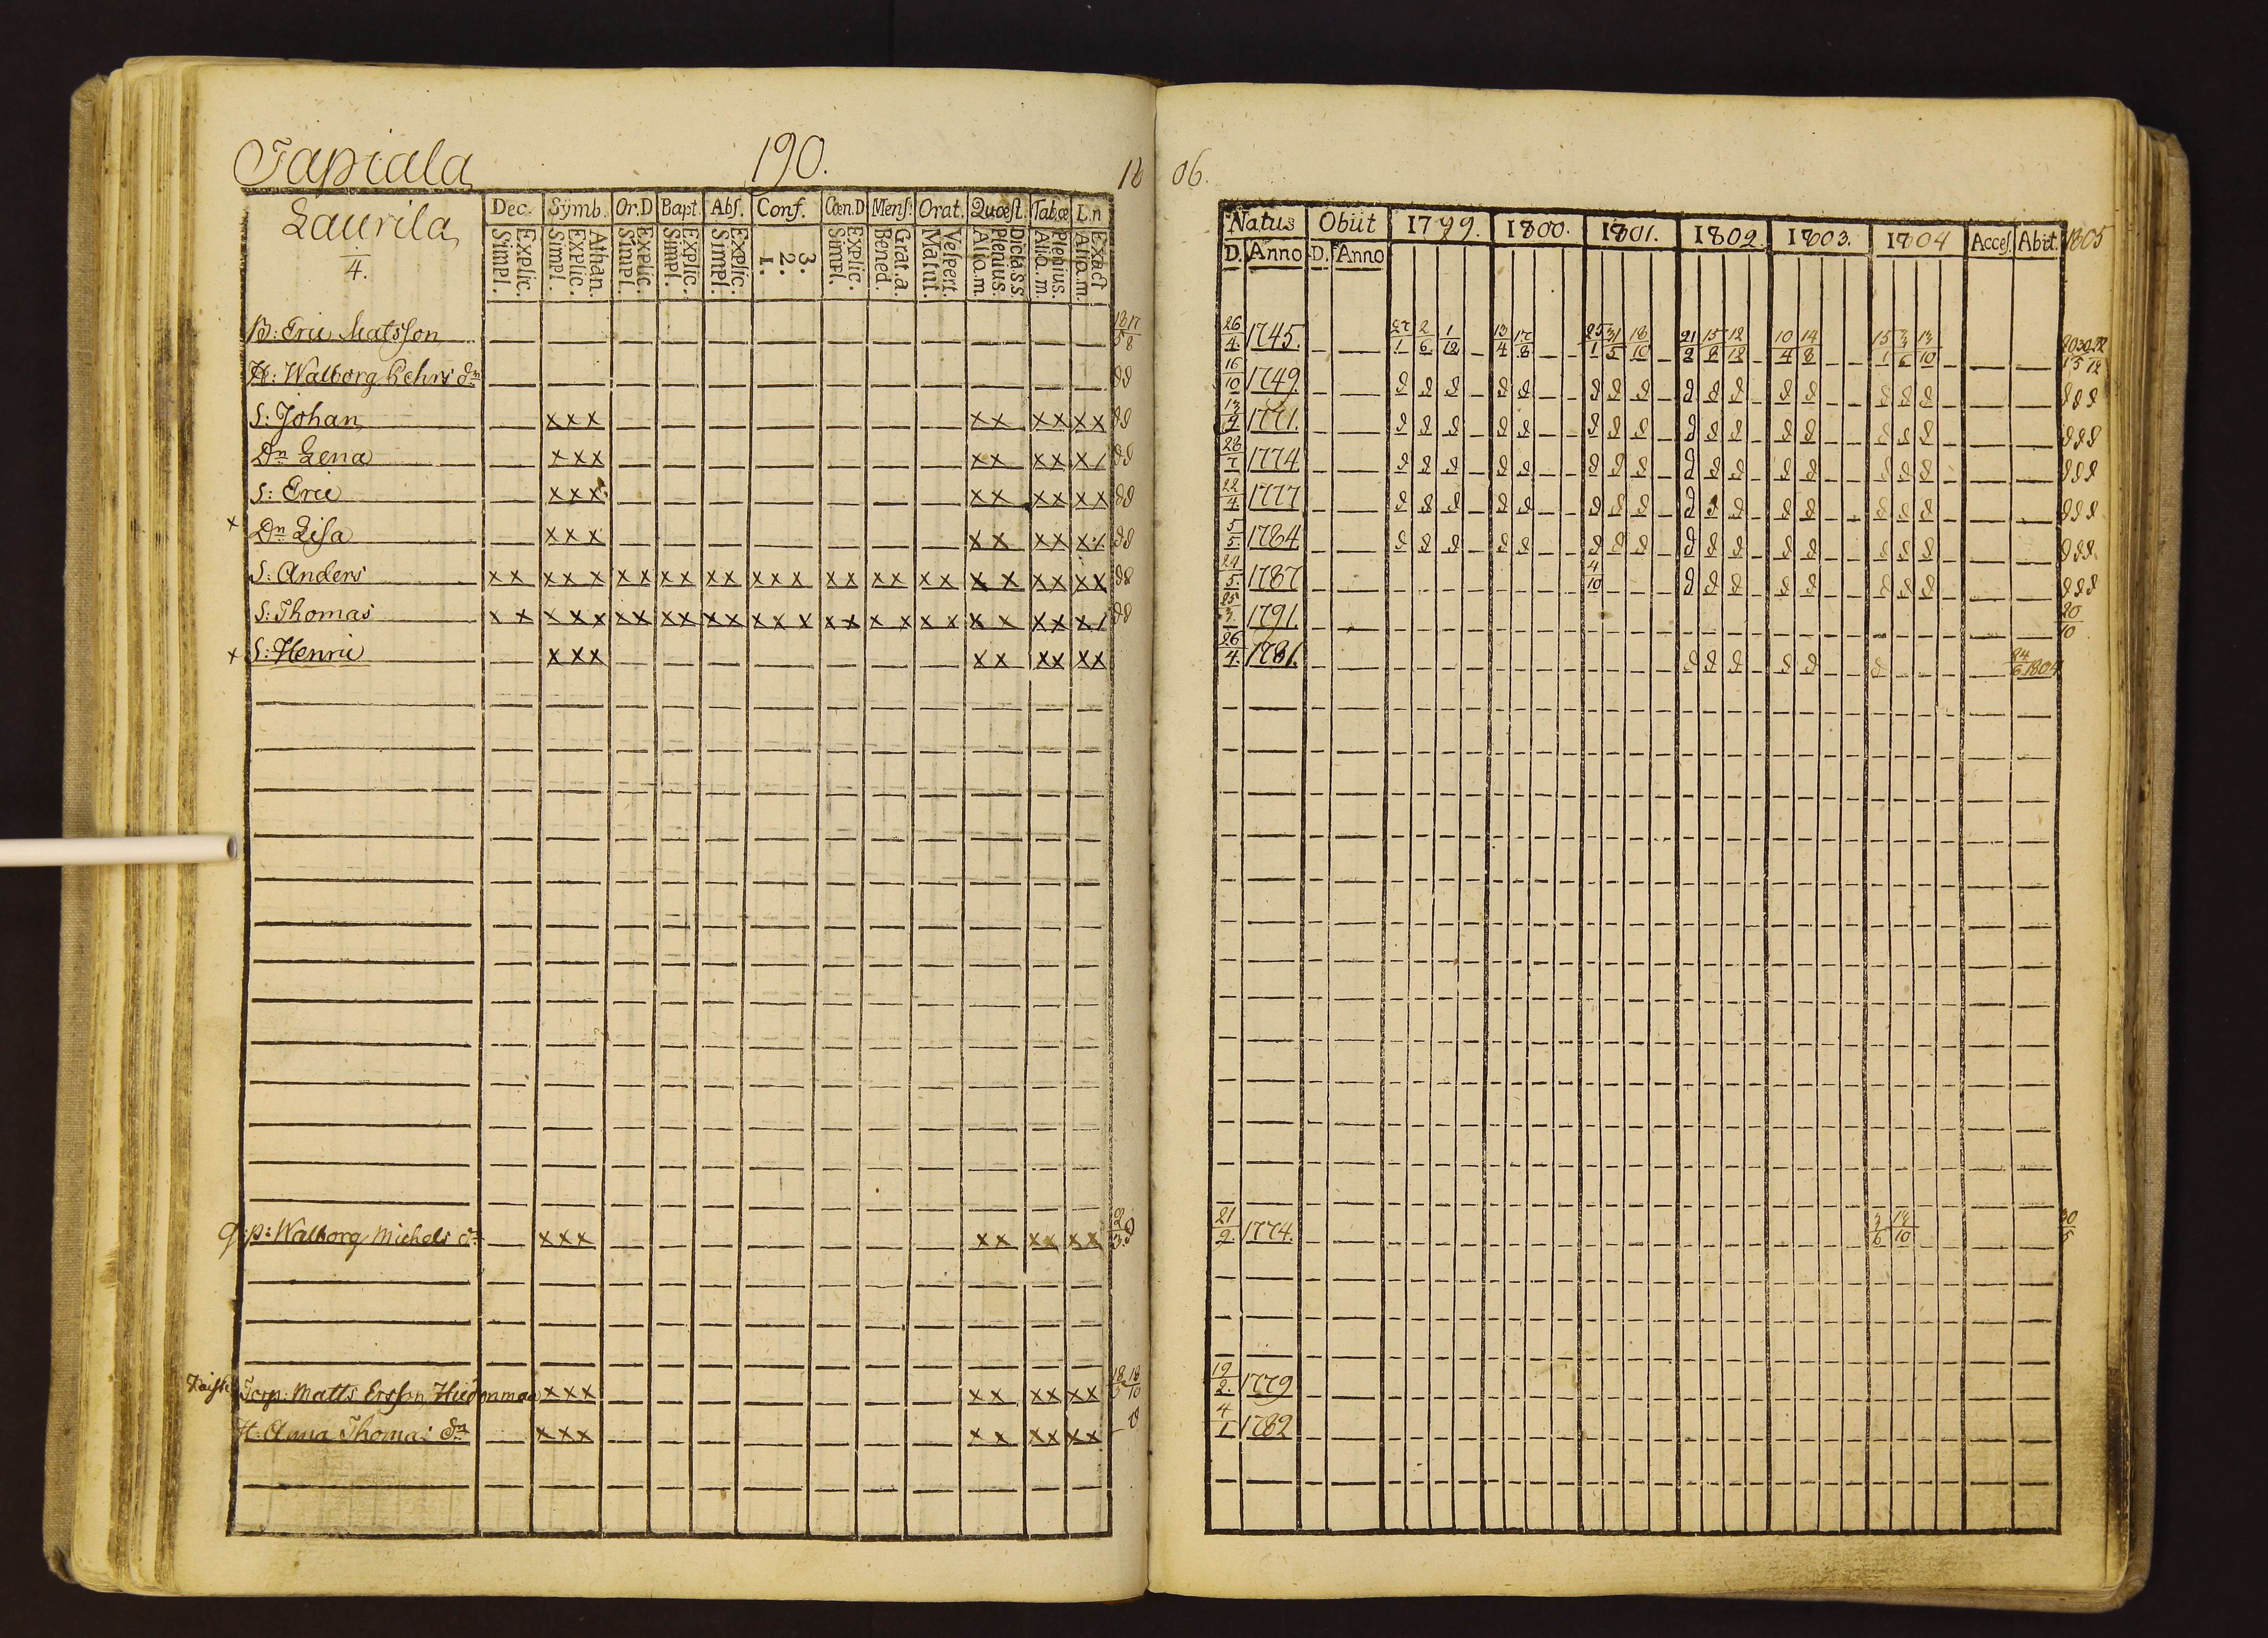 Tapiala 190. 18 06.
Laurila
4.
Dec. Symb. Or.D Bapt. Abs. Conf. Cœn.D Mens: Orat. Quæst. Tab.œ L.n
Simpl. Explic. Simpl. Explic. Athan. Simpl. Explic. Simpl. Explic. Simpl. Explic. 1. 2. 3. Simpl. Explic. Bened. Grat.a. Matut. Vespert. Alio.m. Plenius. Dicta.s.s. Alio.m. Plenius. Alio.m. Exact
Natus Obiit 1799. 1800. 1801. 1802. 1803. 1804 Acces. Abit. 1805
D. Anno D. Anno
B: Eric Matsson 26/4 1745. 27/1 2/6 1/12 13/4 17/8 25/1 31/5 18/10 21/2 15/8 12/12 10/4 14/8 15/1 3/6 13/10
H: Walborg Pehrs dn 16/10 1749
S: Johan xxx xx xx xx 1771.
Dn Lena xxx xx xx x/ 28/7 1774
S: Eric xxx xx xx xx 22/4 1777
x Dn Lisa xxx xx xx x/ 5/5 1784
S: Anders xx xxx xx xx xx xxx xx xx xx xx xx xx 24/5 1787 4/10
S: Thomas xx xxx xx xx xx xxx xx xx xx xx xx x/ 25/3 1791. 20/10
x S: Henric xxx xx xx xx 26/4. 1781. 24/6 1804
q: p: Walborg Michels dr xxx xx xx xx 21/2. 1774. 3/6 13/10 30/5
Torp: Matts Ersson Hiidonmaa xxx xx xx xx 18/10 19/2. 1779
H: Anna Thomas dn xxx xx xx xx 4/1 1782